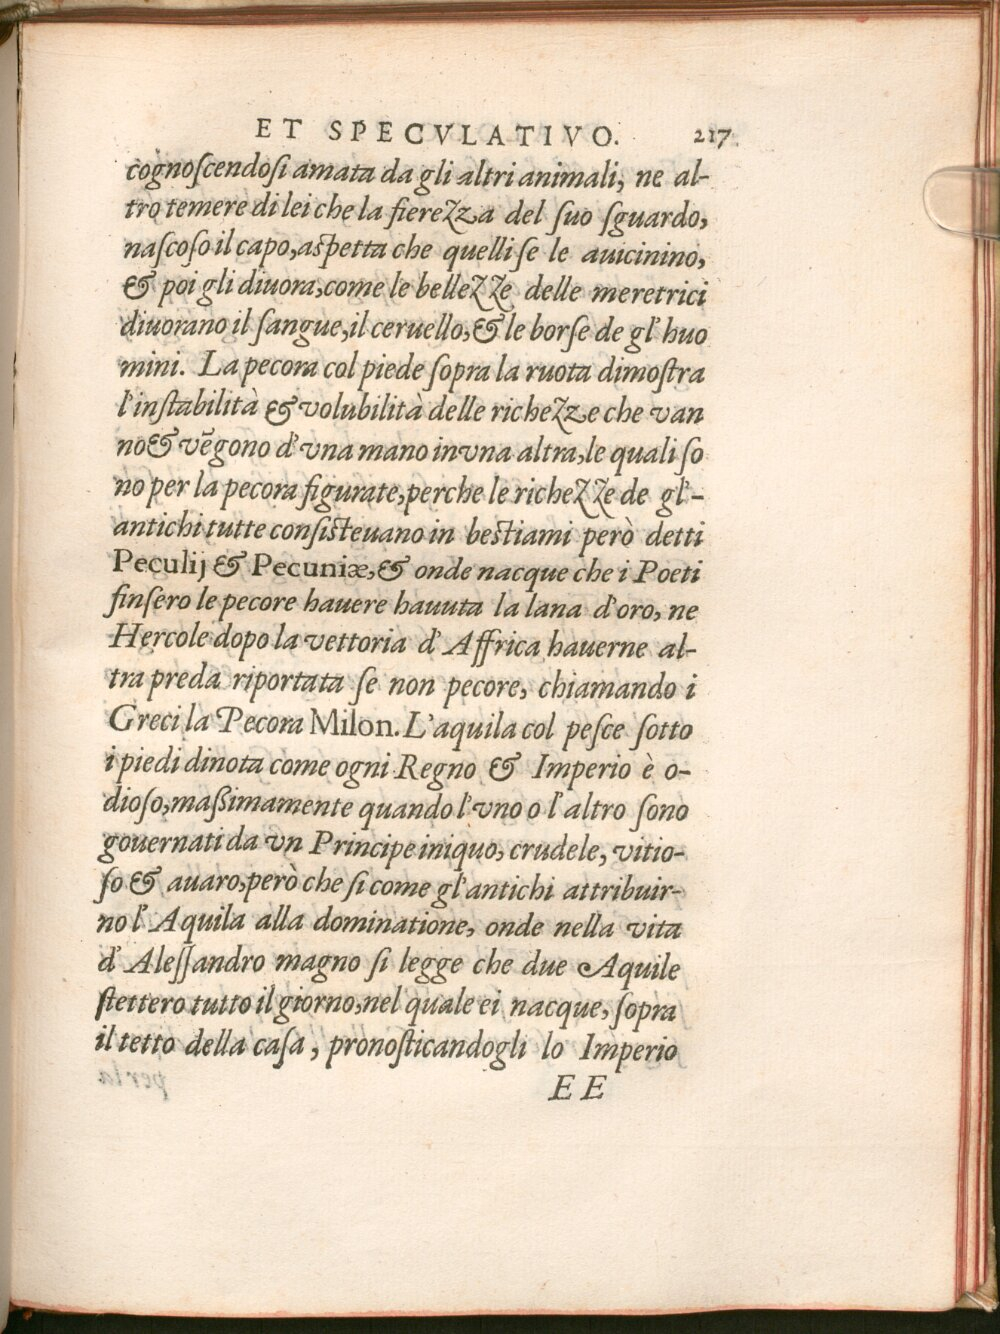 ET SPECVLATIVO. 217
cognoscendosi amata da gli altri animali, ne al-
tro temere di lei che la fierezza del suo sguardo,
nascoso il capo, aspetta che quelli se le auicinino,
& poi gli diuora, come le bellezze delle meretrici
diuorano il sangue, il ceruello, & le borse de gl'huo
mini. La pecora col piede sopra la ruota dimostra
l'instabilità & volubilità delle richezze che van
no & vēgono d'vna mano in vna altra, le quali so
no per la pecora figurate, perche le richezze de gl'-
antichi tutte consisteuano in bestiami però detti
Peculij & Pecuniæ, & onde nacque che i Poeti
finsero le pecore hauere hauuta la lana d'oro, ne
Hercole dopo la vettoria d'Affrica hauerne al-
tra preda riportata se non pecore, chiamando i
Greci la Pecora Milon. L'aquila col pesce sotto
i piedi dinota come ogni Regno & Imperio è o-
dioso, massimamente quando l'vno o l'altro sono
gouernati da vn Principe iniquo, crudele, vitio-
so & auaro, però che si come gl'antichi attribuir-
no l'Aquila alla dominatione, onde nella vita
d'Alessandro magno si legge che due Aquile
stettero tutto il giorno, nel quale ei nacque, sopra
il tetto della casa, pronosticandogli lo Imperio
EE